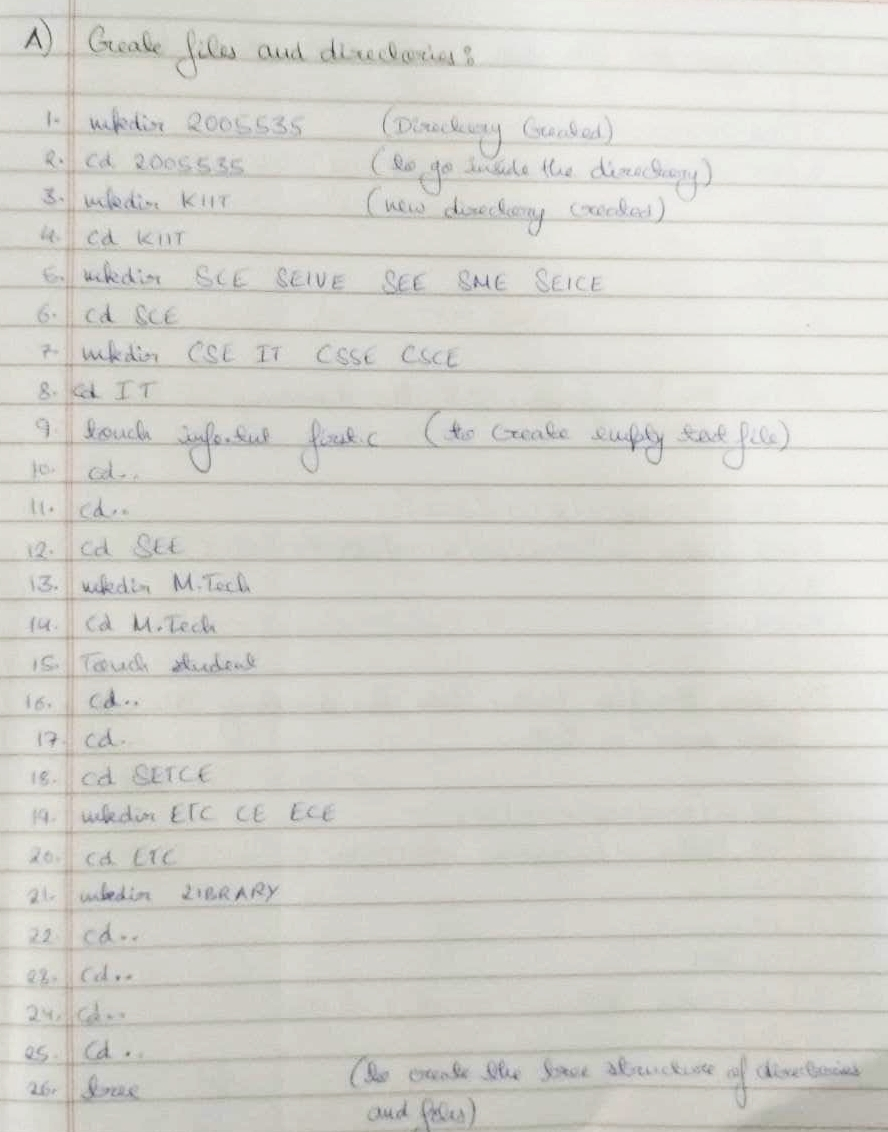 A) Create files and directories :
1. mkdir 2005535 (Directory Created)
2. cd 2005535 (to go inside the directory)
3. mkdir KIIT (new directory created)
4. cd KIIT
5. mkdir SCE SEIVE SEE SME SEICE
6. cd SCE
7. mkdir CSE IT CSSE CSCE
8. cd IT
9. touch info.txt first.c (to create empty text file)
10. cd..
11. cd..
12. cd SEE
13. mkdir M.Tech
14. cd M.Tech
15. Touch student
16. cd..
17. cd.
18. cd SETCE
19. mkdir ETC CE ECE
20. cd ETC
21. mkdir LIBRARY
22. cd..
23. cd..
24. cd..
25. cd ..
26. tree (to create the tree structure of directories
and files)